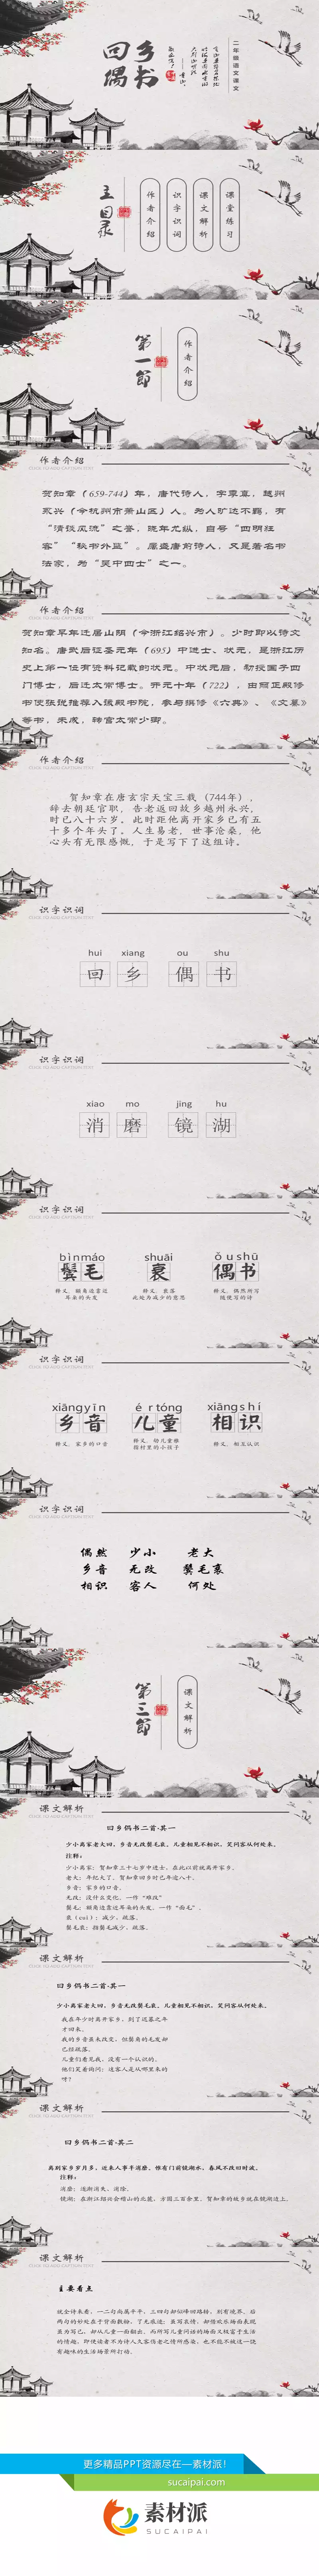 回乡偶书
二年级语文课文
主目录
作者介绍
识字识词
课文解析
课堂练习
第一節
作者介绍
作者介绍
CLICK TO ADD CAPTION TEXT
贺知章（659-744）年，唐代诗人，字季真，越州
永兴（今杭州市萧山区）人。为人旷达不羁，有
“清谈风流”之誉，晚年尤纵，自号“四明狂
客”“秘书外监”。属盛唐前诗人，又是著名书
法家，为“吴中四士”之一。
作者介绍
CLICK TO ADD CAPTION TEXT
贺知章早年迁居山阴（今浙江绍兴市）。少时即以诗文
知名。唐武后证圣元年（695）中进士、状元，是浙江历
史上第一位有资料记载的状元。中状元后，初授国子四
门博士，后迁太常博士。开元十年（722），由丽正殿修
书使张说推荐入该殿书院，参与撰修《六典》、《文纂》
等书，未成，转官太常少卿。
作者介绍
CLICK TO ADD CAPTION TEXT
贺知章在唐玄宗天宝三载（744年），
辞去朝廷官职，告老返回故乡越州永兴，
时已八十六岁。此时距他离开家乡已有五
十多个年头了。人生易老，世事沧桑，他
心头有无限感慨，于是写下了这组诗。
识字识词
CLICK TO ADD CAPTION TEXT
hui xiang ou shu
回 乡 偶 书
识字识词
CLICK TO ADD CAPTION TEXT
xiao mo jing hu
消 磨 镜 湖
识字识词
CLICK TO ADD CAPTION TEXT
bìnmáo shuāi ǒu shū
鬓毛 衰 偶书
释义：额角边靠近耳朵的头发
释义：衰落 此处为减少的意思
释义：偶然所写 随便写的诗
识字识词
CLICK TO ADD CAPTION TEXT
xiāngyīn é rtóng xiāngshí
乡音 儿童 相识
释义：家乡的口音
释义：指村里的小孩子
释义：相互认识
识字识词
CLICK TO ADD CAPTION TEXT
偶然 少小 老大
乡音 无改 鬓毛衰
相识 客人 何处
第三節
课文解析
课文解析
CLICK TO ADD CAPTION TEXT
回乡偶书二首·其一
少小离家老大回，乡音无改鬓毛衰。儿童相见不相识，笑问客从何处来。
注释：
少小离家：贺知章三十七岁中进士，在此以前就离开家乡。
老大：年纪大了。贺知章回乡时已年逾八十。
乡音：家乡的口音。
无改：没什么变化。一作“难改”
鬓毛：额角边靠近耳朵的头发。一作“面毛”。
衰（cuī）：减少，疏落。
鬓毛衰：指鬓毛减少，疏落。
课文解析
CLICK TO ADD CAPTION TEXT
回乡偶书二首·其一
少小离家老大回，乡音无改鬓毛衰。儿童相见不相识，笑问客从何处来。
我在年少时离开家乡，到了迟暮之年
才回来。
我的乡音虽未改变，但鬓角的毛发却
已经疏落。
儿童们看见我，没有一个认识的。
他们笑着询问：这客人是从哪里来的
呀？
课文解析
CLICK TO ADD CAPTION TEXT
回乡偶书二首·其二
离别家乡岁月多，近来人事半消磨。惟有门前镜湖水，春风不改旧时波。
注释：
消磨：逐渐消失、消除。
镜湖：在浙江绍兴会稽山的北麓，方圆三百余里。贺知章的故乡就在镜湖边上。
课文解析
CLICK TO ADD CAPTION TEXT
主要看点
就全诗来看，一二句尚属平平，三四句却似峰回路转，别有境界。后
两句的妙处在于背面敷粉，了无痕迹：虽写哀情，却借欢乐场面表现
虽为写己，却从儿童一面翻出。而所写儿童问话的场面又极富于生活
的情趣，即使读者不为诗人久客伤老之情所感染，也不能不被这一饶
有趣味的生活场景所打动。
更多精品PPT资源尽在—素材派！
sucaipai.com
素材派
SUCAIPAI